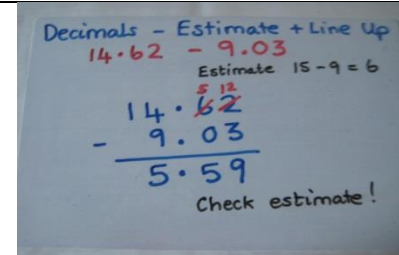 Decimals - Estimate + Line Up
14·62 - 9.03
Estimate 15-9=6
5 12
14·62
- 9.03
5·59
Check estimate!